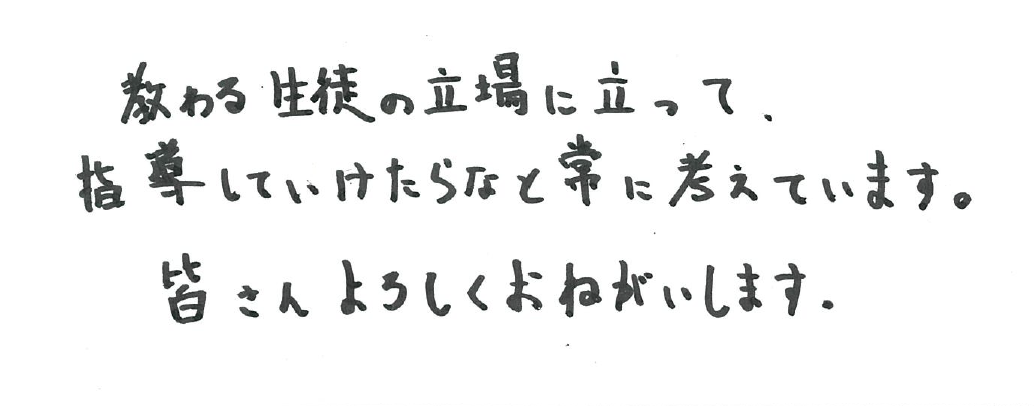 教わる生徒の立場に立って、
指導していけたらなと常に考えています。
皆さんよろしくおねがいします.